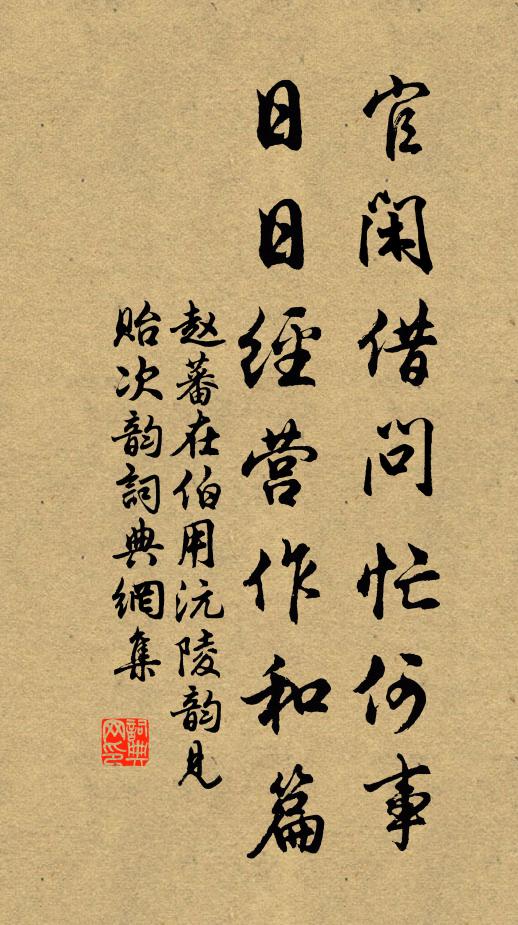 官闲借问忙何事
日日經营作和篇
赵蕃在伯用沅陵韵见
贻次韵詞典網集
詞典网印